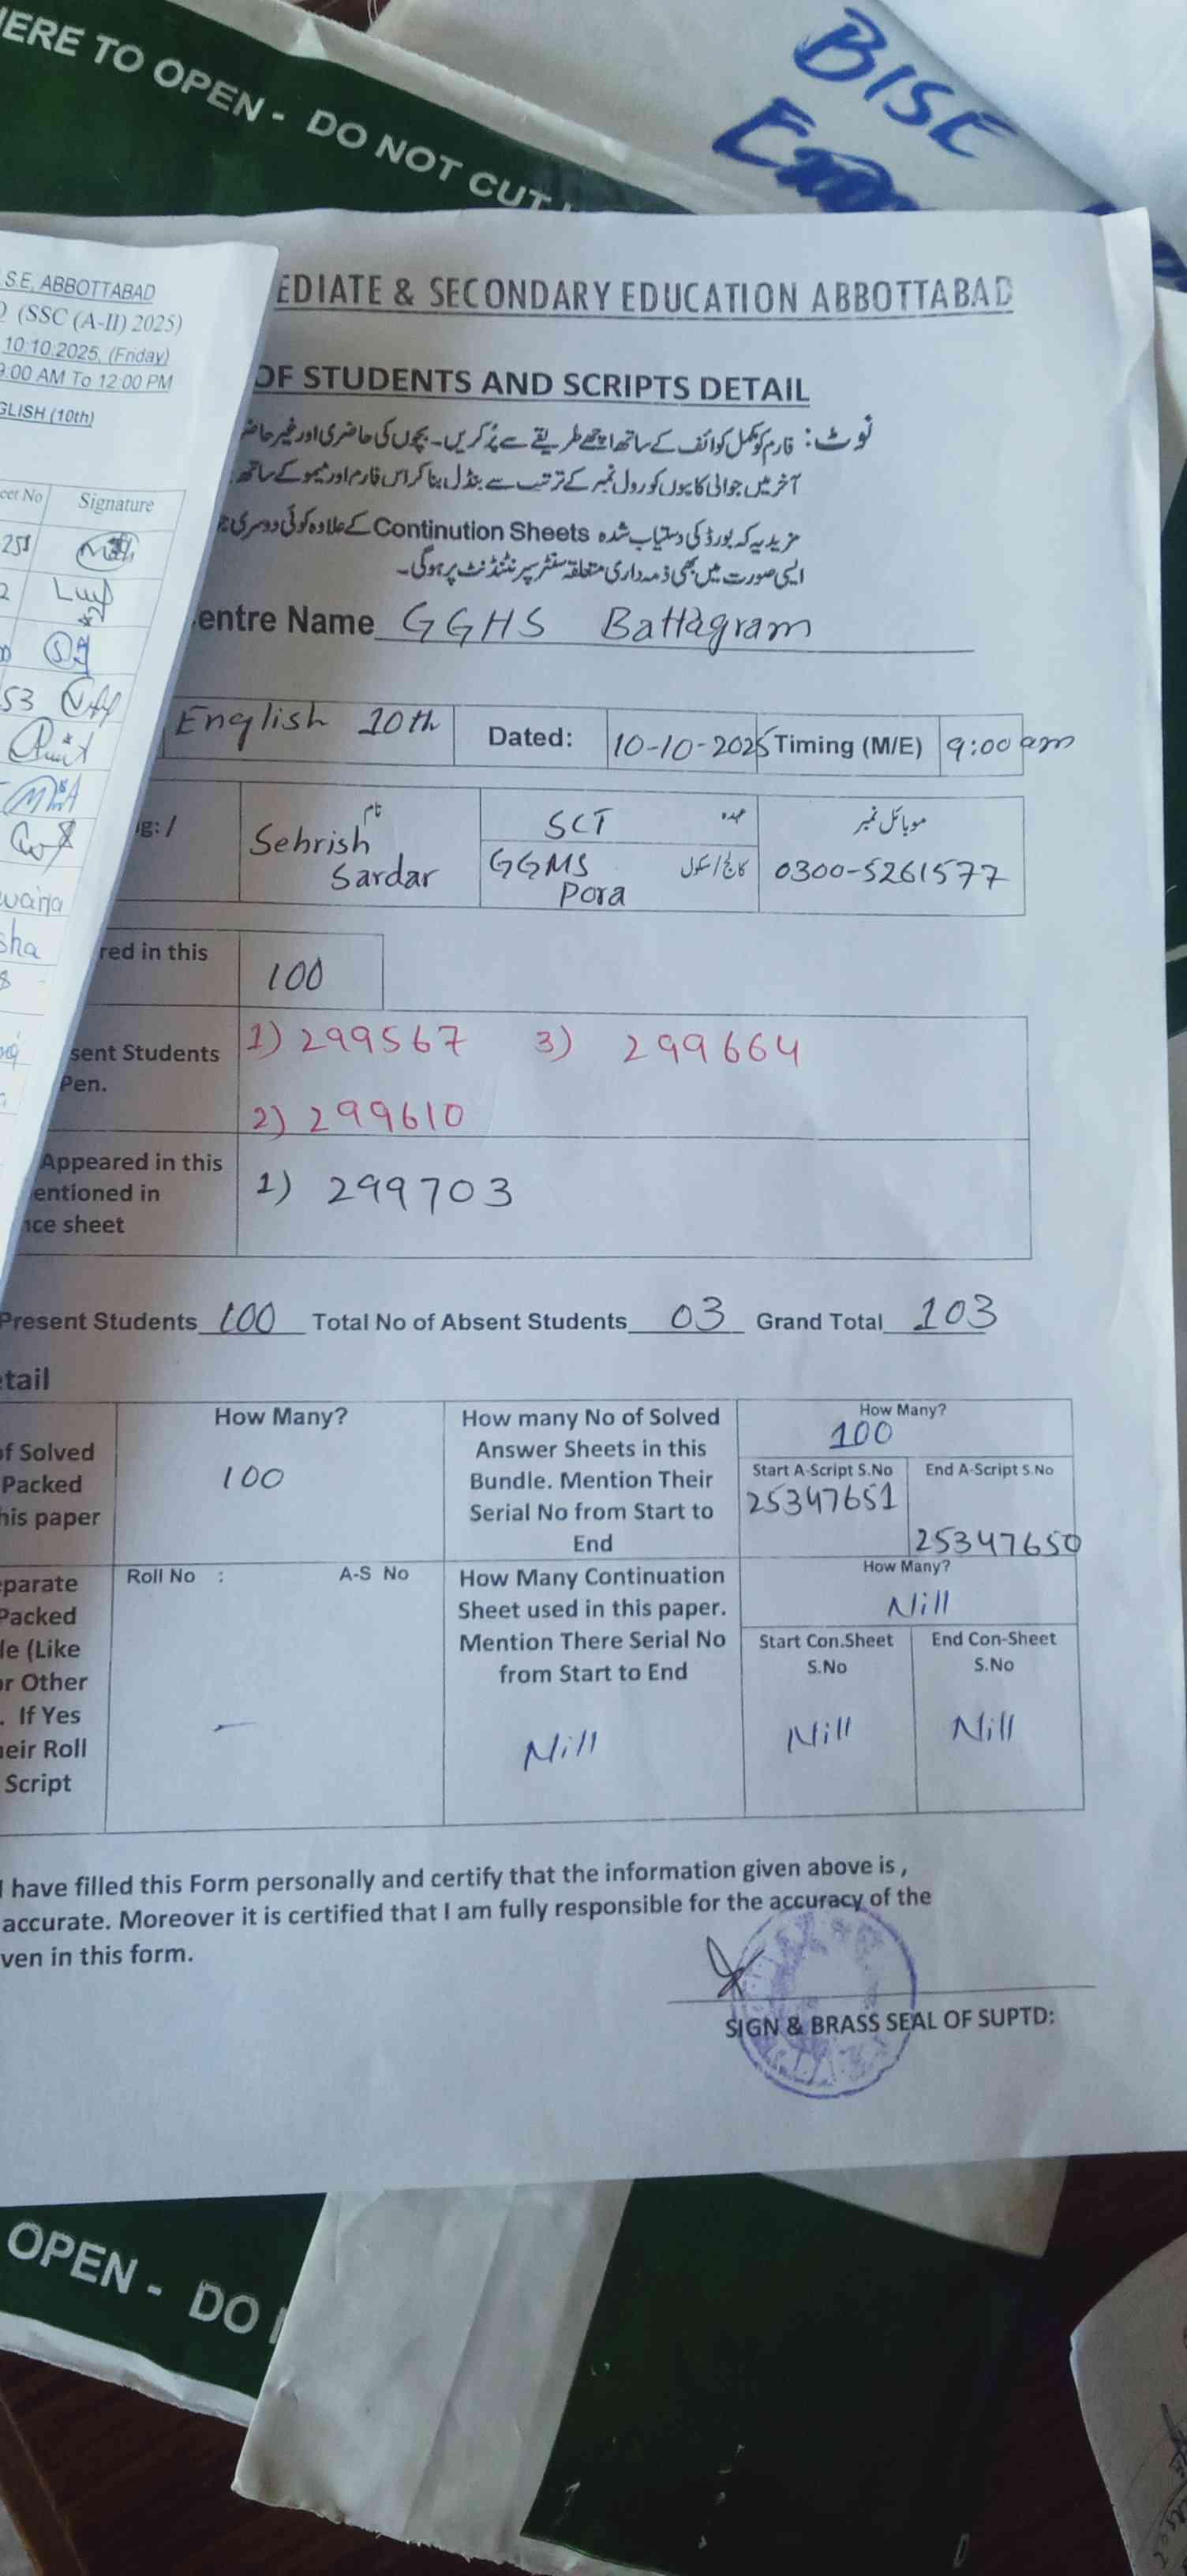 HERE TO OPEN - DO NOT CUT
BISE
S.E, ABBOTTABAD
(SSC (A-II) 2025)
10.10.2025, (Friday)
9:00 AM To 12:00 PM
GLISH (10th)
eet No Signature
EDIATE & SECONDARY EDUCATION ABBOTTABAD
OF STUDENTS AND SCRIPTS DETAIL
نوٹ: فارم کو مکمل کوائف کے ساتھ اچھے طریقے سے پُر کریں۔ بچوں کی حاضری اور غیر حاضر
آخر میں جوابی کاپیوں کو رول نمبر کے ترتیب سے بنڈل بنا کر اس فارم اور میمو کے ساتھ
مزید یہ کہ بورڈ کی دستیاب شدہ Continution Sheets کے علاوہ کوئی دوسری
ایسی صورت میں بھی ذمہ داری متعلقہ سنٹر سپرنٹنڈنٹ پر ہوگی۔
entre Name GGHS Battagram
English 10th Dated: 10-10-2025 Timing (M/E) 9:00 am
g: / نام Sehrish Sardar SCT عہدہ موبائل نمبر
GGMS Pora کالج/سکول 0300-5261577
red in this 100
sent Students 1) 299567 3) 299664
Pen.
2) 299610
Appeared in this 1) 299703
entioned in
ce sheet
Present Students 100 Total No of Absent Students 03 Grand Total 103
etail
of Solved
Packed
his paper
How Many?
100
How many No of Solved
Answer Sheets in this
Bundle. Mention Their
Serial No from Start to
End
How Many?
100
Start A-Script S.No End A-Script S.No
25347651
25347650
eparate
Packed
le (Like
or Other
. If Yes
heir Roll
Script
Roll No : A-S No
–
How Many Continuation
Sheet used in this paper.
Mention There Serial No
from Start to End
Nill
How Many?
Nill
Start Con.Sheet S.No End Con-Sheet S.No
Nill Nill
I have filled this Form personally and certify that the information given above is ,
accurate. Moreover it is certified that I am fully responsible for the accuracy of the
ven in this form.
SIGN & BRASS SEAL OF SUPTD:
OPEN - DO